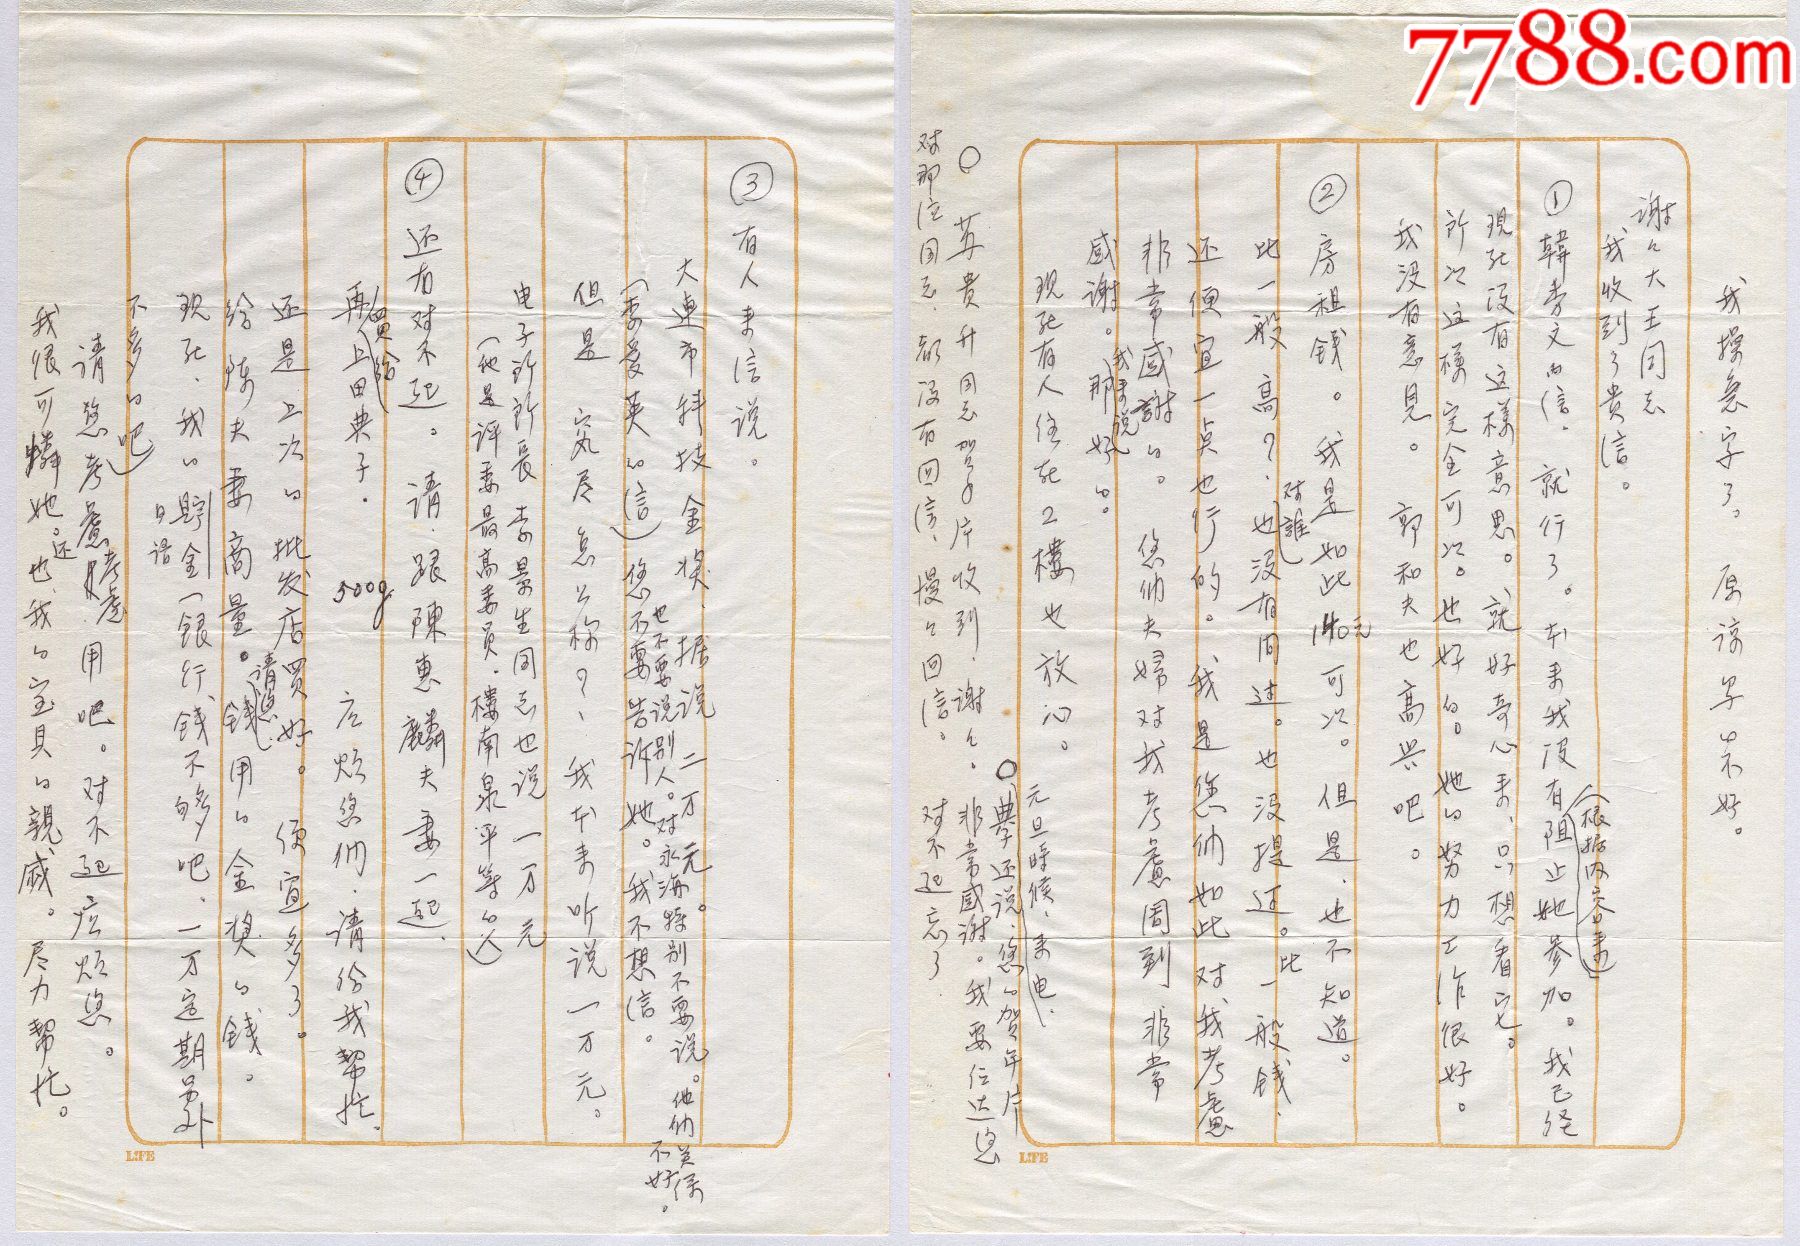 7788.com
我操急字了。原谅字不好。
谢々大王同志
我收到了贵信。
① 韓秀文的信，就行了。本来我没有阻止她参加。我已经
（根据内容来）
现在没有这样意思。就好奇心来，只想看它。
所以这样完全可以。也好的。她的努力工作很好。
我没有意见。 郭和夫也高兴吧。
② 房租钱。我是如此140元可以。但是，也不知道。
比一般高？，也没有问过。也没提过。比一般钱，
对誰
还便宜一点也行的。我是您们如此对我考慮
非常感謝的。您们夫婦对我考慮周到非常
感谢。那好的。
我来说
现在有人住在2樓也放心。
元旦時候，来电，
○ 苏贵升同志贺年片收到，谢々。
○ 典子还说，您的贺年片
非常感谢。我要传达您
对那位同志，都没有回信，慢々回信。
对不起忘了
③ 有人来信说。
大连市科技金奖，据说二万元。
也不要说别人。对永海特别不要说。他们关系
不好。
（李爱英的信）您不要告诉她。我不想信。
但是 究尽怎么称？，我本来听说一万元。
电子所所長李景生同志也说一万元
（他是评委最高委员，樓南泉平等的人）
④ 还有对不起。请，跟陳惠麟夫妻一起，
再買给上田典子。500g 広烦您们，请份我幫忙，
还是上次的批发店買好。便宜多了。
给陳夫妻商量。錢用的金獎的錢。
请您
现在，我的貯金（銀行錢不够吧，一万定期另外
日语
不多的吧）
请您考慮考虑用吧。对不起広烦您。
我很可憐她。还也，我的宝贝的親戚。尽力幫忙。
LIFE
LIFE